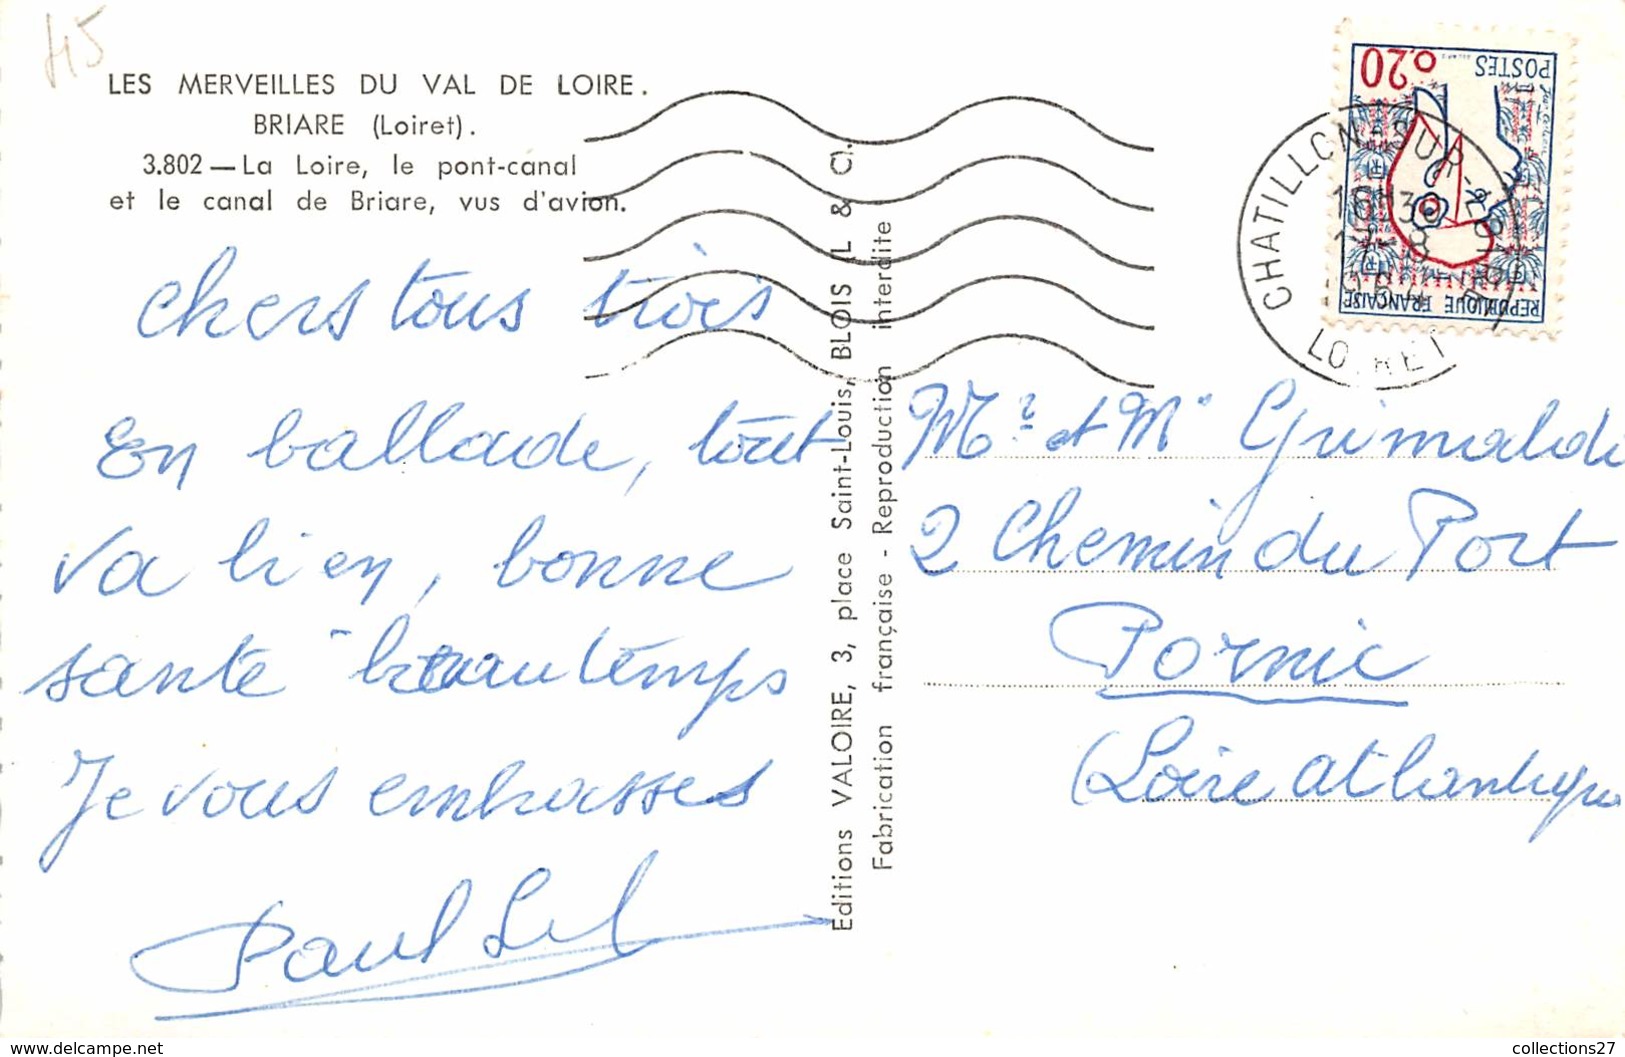 45
LES MERVEILLES DU VAL DE LOIRE.
BRIARE (Loiret).
3.802 — La Loire, le pont-canal
et le canal de Briare, vus d'avion.
chers tous trois
En ballade, tout
va bien, bonne
santé - beau temps
Je vous embrasses
Paul
Editions VALOIRE, 3, place Saint-Louis, BLOIS (L & C).
Fabrication française - Reproduction interdite
0,20
POSTES
REPUBLIQUE FRANÇAISE
RF
CHATILLON-SUR-
16H30
17-8
LOIRET
Mr et Me Grimaldi
2 Chemin du Port
Pornic
(Loire atlantique
collections27